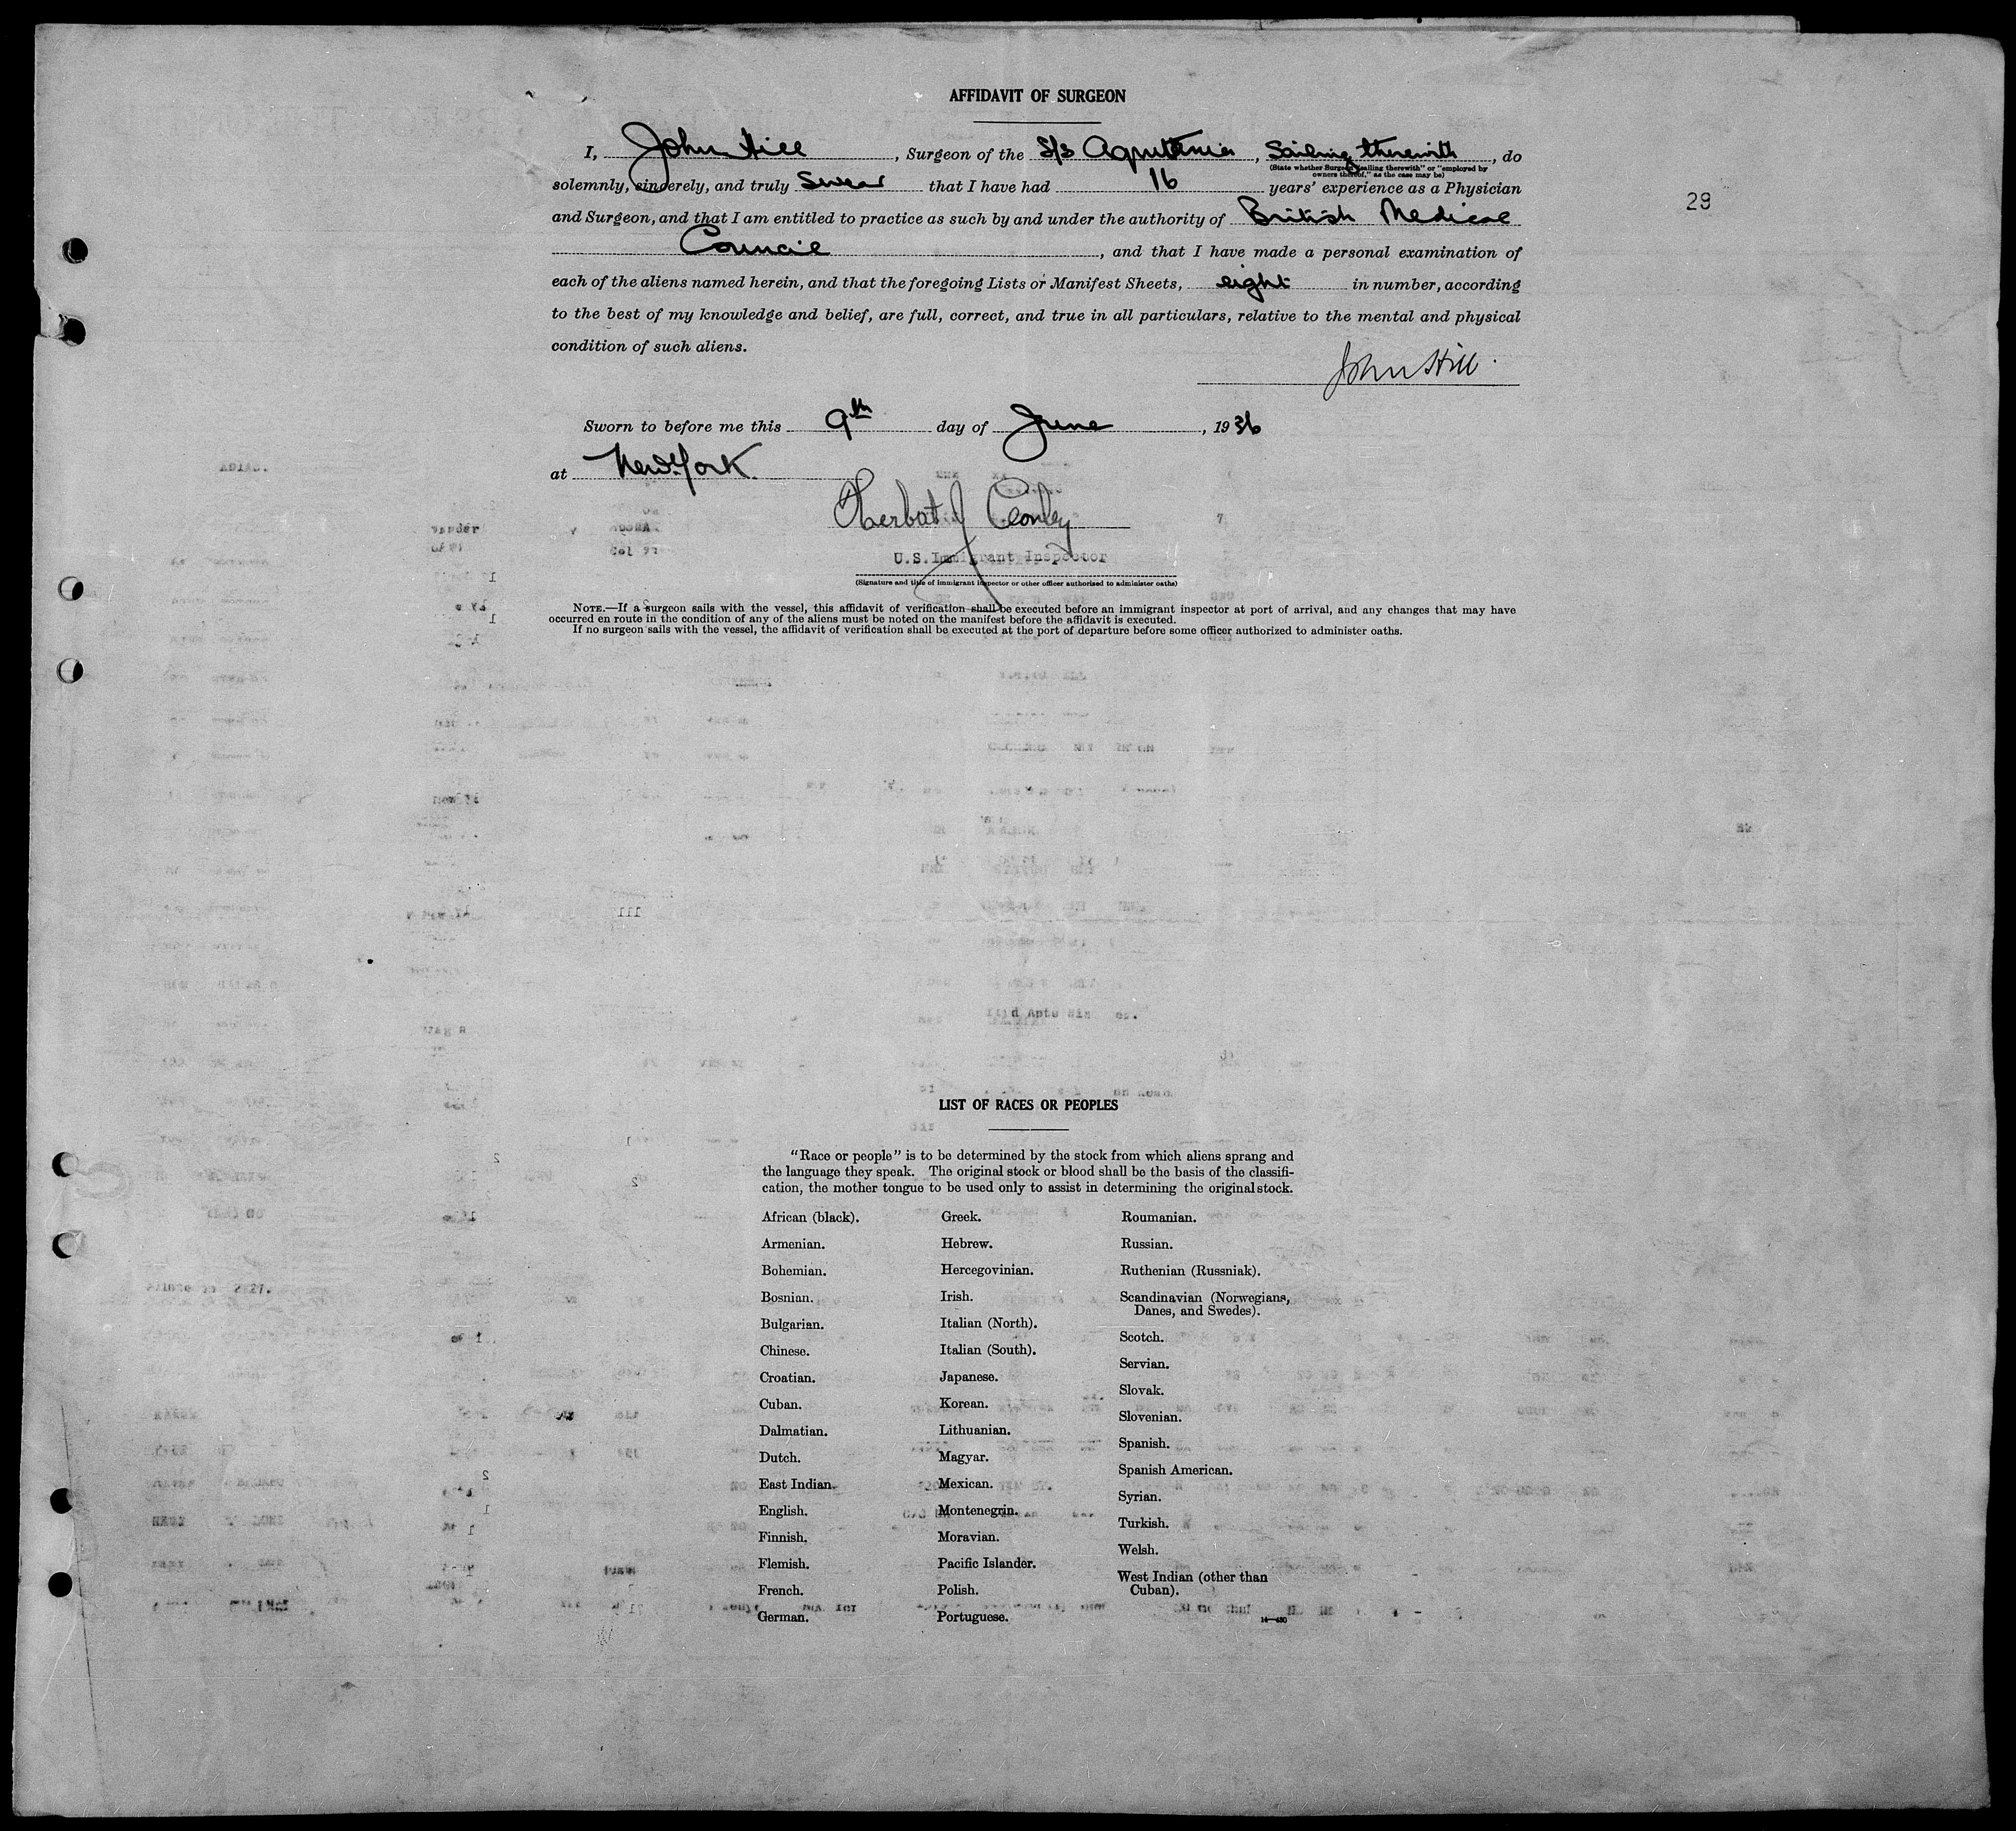 AFFIDAVIT OF SURGEON
I, John Hill, Surgeon of the S/S Aquitania, Sailing therewith, do
(State whether Surgeon "sailing therewith" or "employed by
owners thereof," as the case may be)
solemnly, sincerely, and truly Swear that I have had 16 years' experience as a Physician
29
and Surgeon, and that I am entitled to practice as such by and under the authority of British Medical
Council, and that I have made a personal examination of
each of the aliens named herein, and that the foregoing Lists or Manifest Sheets, eight in number, according
to the best of my knowledge and belief, are full, correct, and true in all particulars, relative to the mental and physical
condition of such aliens.
John Hill.
Sworn to before me this 9th day of June, 1936
at New York
Herbert J Conley
U.S. Immigrant Inspector
(Signature and title of immigrant inspector or other officer authorized to administer oaths)
NOTE.—If a surgeon sails with the vessel, this affidavit of verification shall be executed before an immigrant inspector at port of arrival, and any changes that may have
occurred en route in the condition of any of the aliens must be noted on the manifest before the affidavit is executed.
If no surgeon sails with the vessel, the affidavit of verification shall be executed at the port of departure before some officer authorized to administer oaths.
LIST OF RACES OR PEOPLES
"Race or people" is to be determined by the stock from which aliens sprang and
the language they speak. The original stock or blood shall be the basis of the classifi-
cation, the mother tongue to be used only to assist in determining the original stock.
African (black).
Armenian.
Bohemian.
Bosnian.
Bulgarian.
Chinese.
Croatian.
Cuban.
Dalmatian.
Dutch.
East Indian.
English.
Finnish.
Flemish.
French.
German.
Greek.
Hebrew.
Hercegovinian.
Irish.
Italian (North).
Italian (South).
Japanese.
Korean.
Lithuanian.
Magyar.
Mexican.
Montenegrin.
Moravian.
Pacific Islander.
Polish.
Portuguese.
Roumanian.
Russian.
Ruthenian (Russniak).
Scandinavian (Norwegians,
Danes, and Swedes).
Scotch.
Servian.
Slovak.
Slovenian.
Spanish.
Spanish American.
Syrian.
Turkish.
Welsh.
West Indian (other than
Cuban).